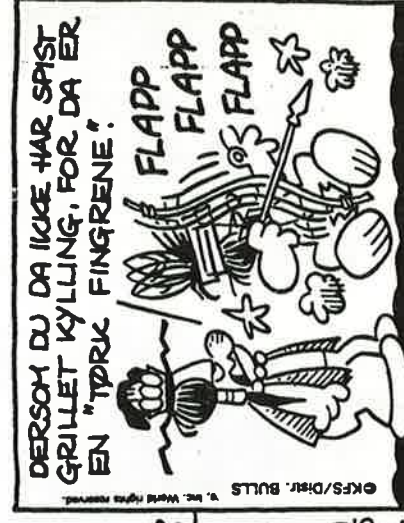 DERSOM DU DA IKKE HAR SPIST
GRILLET KYLLING, FOR DA ER
EN "TØRK FINGRENE".
FLAPP
FLAPP
FLAPP
©KFS/Distr. BULLS
, Inc. World rights reserved.